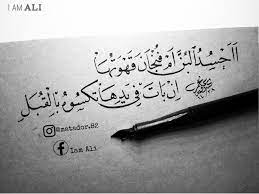 I AM ALI
أَأَحْسُدُ البُنَّ أَمْ فُنْجَانَ قَهْوَتِهَا
إِنْ بَاتَ فِي يَدِهَا تَكْسُوهُ بِالْقُبَلِ
@matador.82
Iam Ali